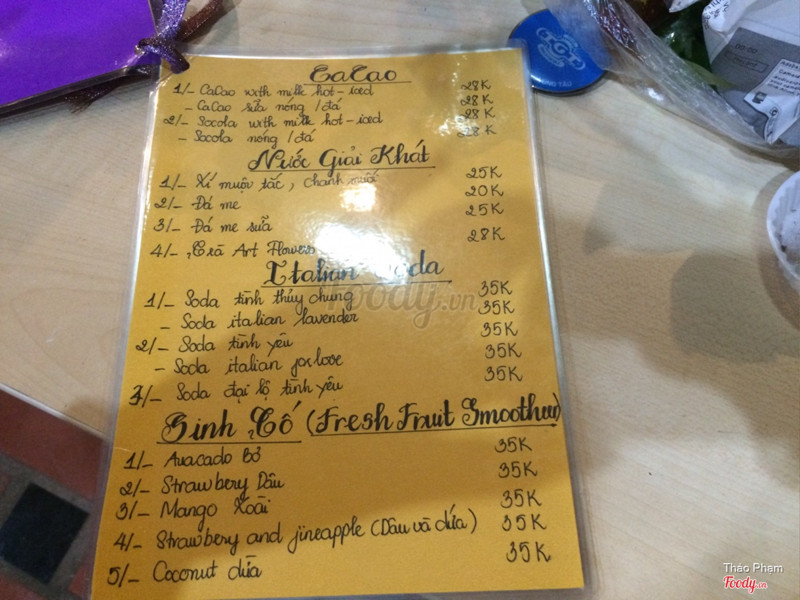 CaCao
1/- CaCao with milk hot-iced 28K
- CaCao sữa nóng /đá 28K
2/- Socola with milk hot-iced 28K
- Socola nóng /đá 28K
Nước Giải Khát
1/- Xí muội tắc, chanh muối 25K
2/- Đá me 20K
3/- Đá me sữa 25K
4/- Trà Art Flowers 28K
Italian Soda
1/- Soda tình thủy chung 35K
- Soda italian lavender 35K
2/- Soda tình yêu 35K
- Soda italian for love 35K
3/- Soda đại lộ tình yêu 35K
Sinh Tố (Fresh Fruit Smoothee)
1/- Avacado Bơ 35K
2/- Strawbery Dâu 35K
3/- Mango Xoài 35K
4/- Strawbery and jineapple (Dâu và dứa) 35K
5/- Coconut dừa 35K
Foody.vn
Thảo Phạm
Foody.vn